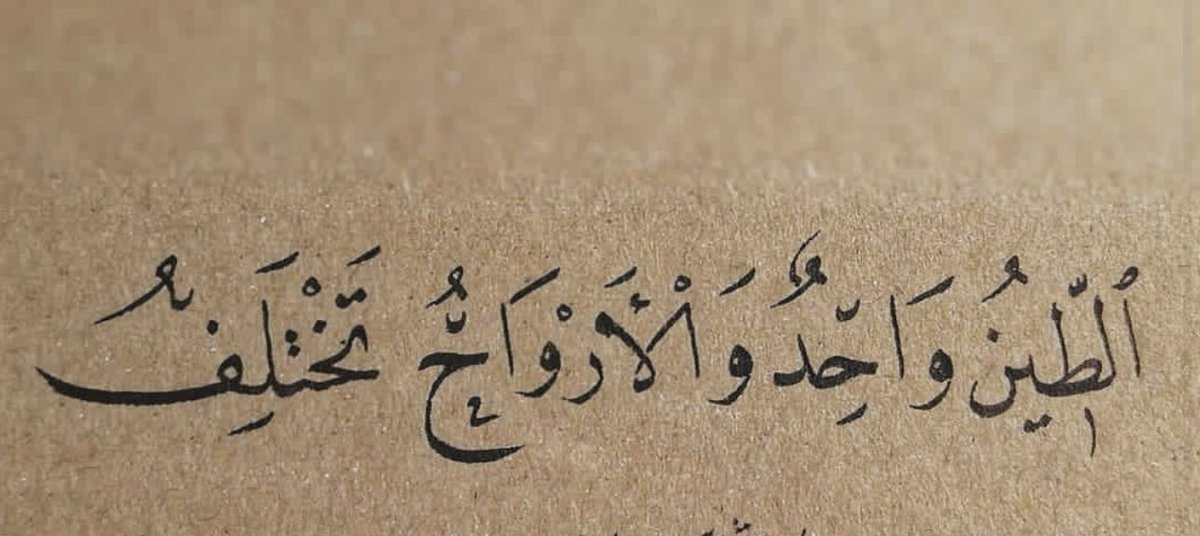 ٱلطِّينُ وَاحِدٌ وَالْأَرْوَاحُ تَخْتَلِفُ